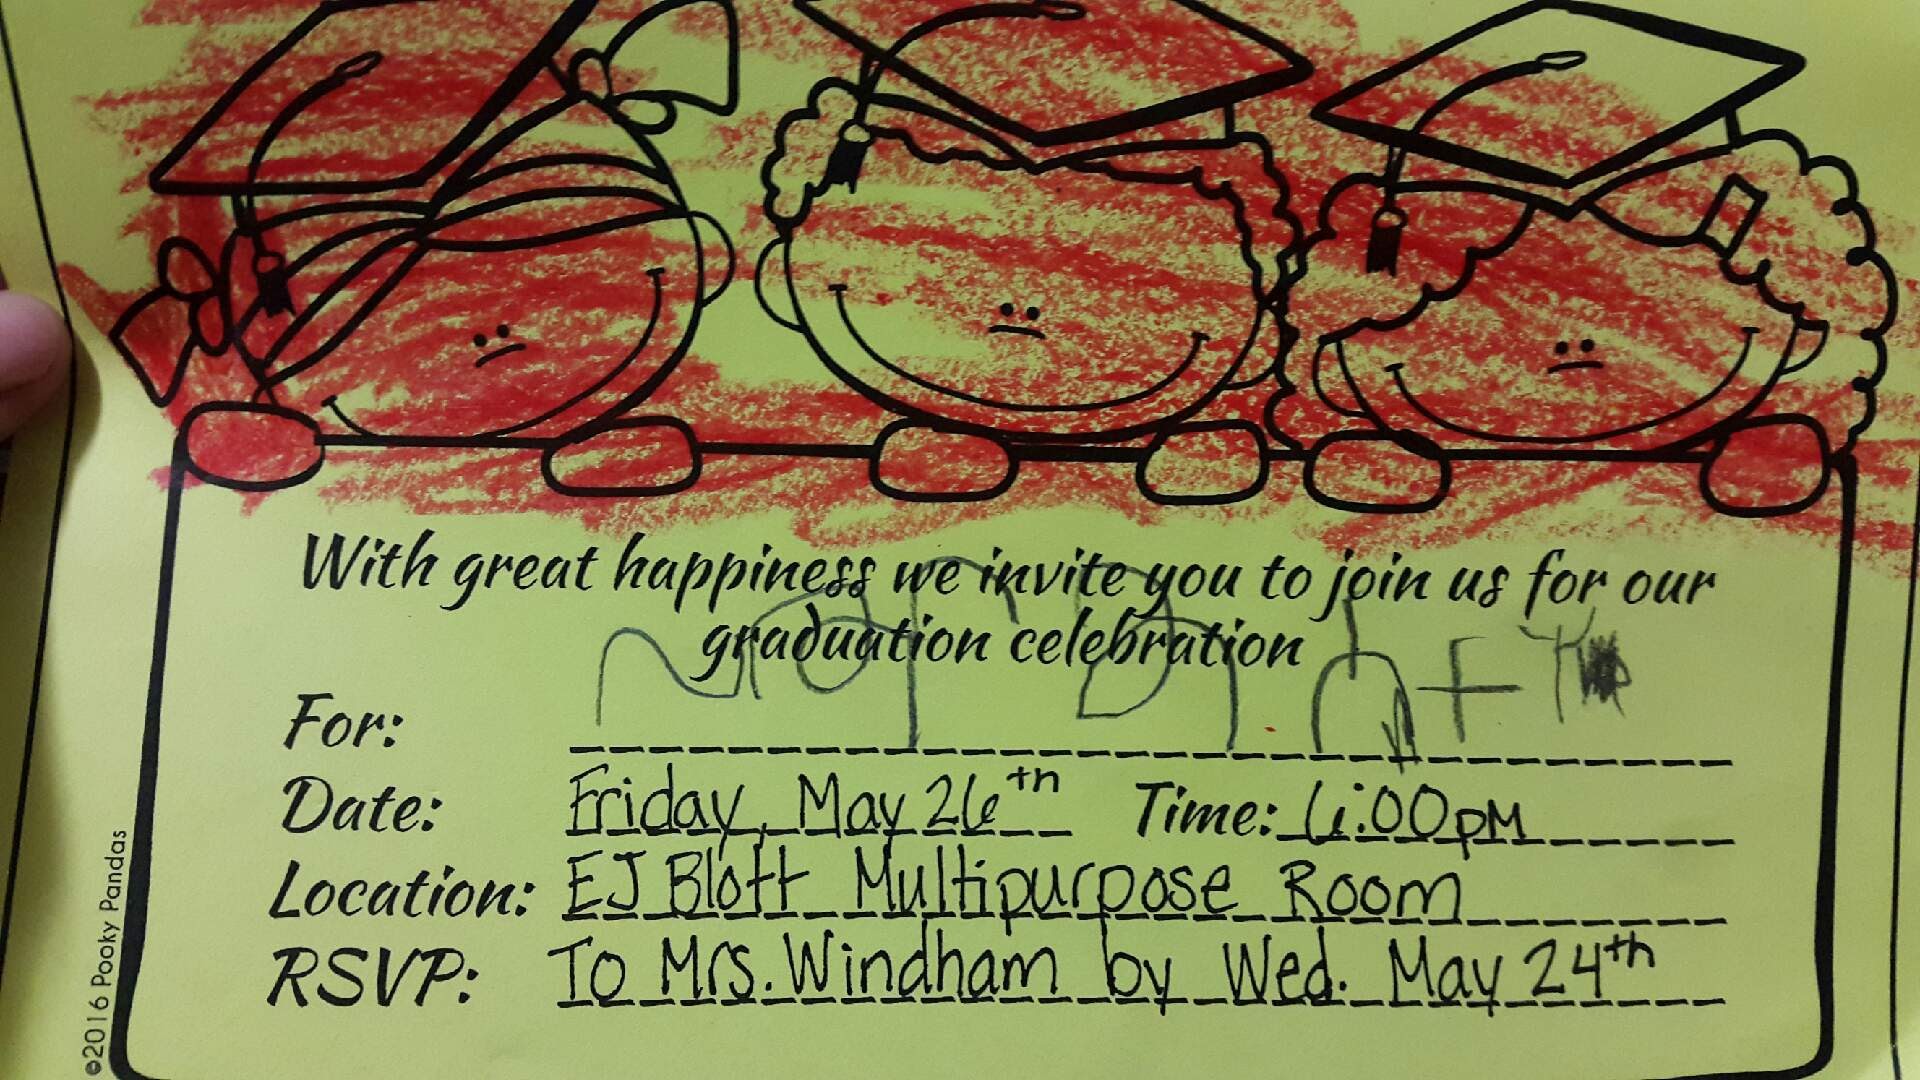 With great happiness we invite you to join us for our
graduation celebration
For:
Date: Friday, May 26th Time: 6:00pm
Location: EJ Blott Multipurpose Room
RSVP: To Mrs. Windham by Wed. May 24th
©2016 Pooky Pandas